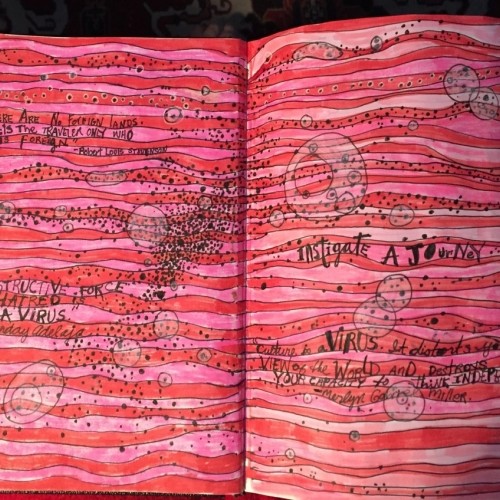 ERE ARE NO FOREIGN LANDS.
IS THE TRAVELER ONLY WHO
IS FOREIGN"
- ROBERT LOUIS STEVENSON
STRUCTIVE FORCE
HATRED IS
A VIRUS.
nday Adelaja
INSTIGATE A JOURNEY
"Culture is VIRUS. It distorts your
VIEW of the WORLD AND DESTROYS
YOUR CAPACITY to THINK INDEPE